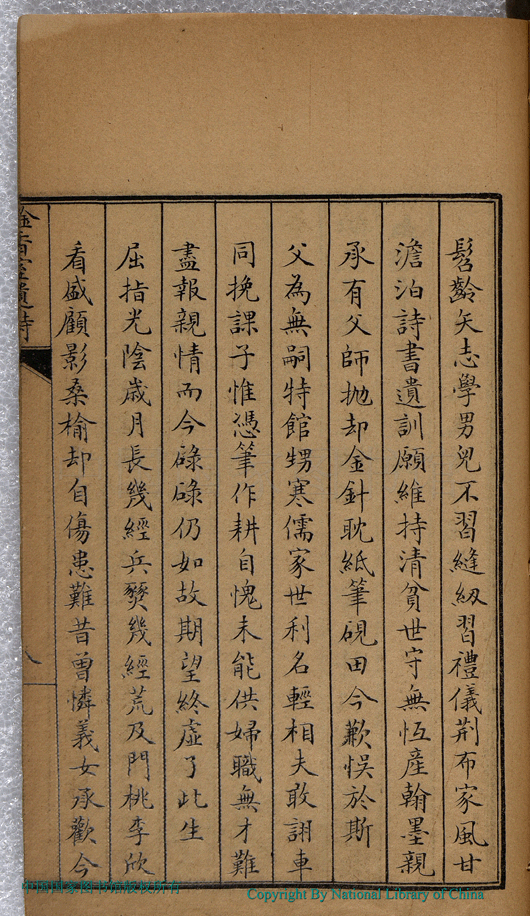 髫齡矢志學男兒不習縫紉習禮儀荆布家風甘
澹泊詩書遺訓願維持清貧世守無恆產翰墨親
承有父師抛却金針耽紙筆硯田今歎悞於斯
父為無嗣特館甥寒儒家世利名輕相夫敢詡車
同挽課子惟憑筆作耕自愧未能供婦職無才難
盡報親情而今碌碌仍如故期望終虛了此生
屈指光陰歲月長幾經兵燹幾經荒及門桃李欣
看盛顧影桑榆却自傷患難昔曾憐義女承歡今
室遺詩
八
中國國家图书馆版权所有
Copyright By National Library of China